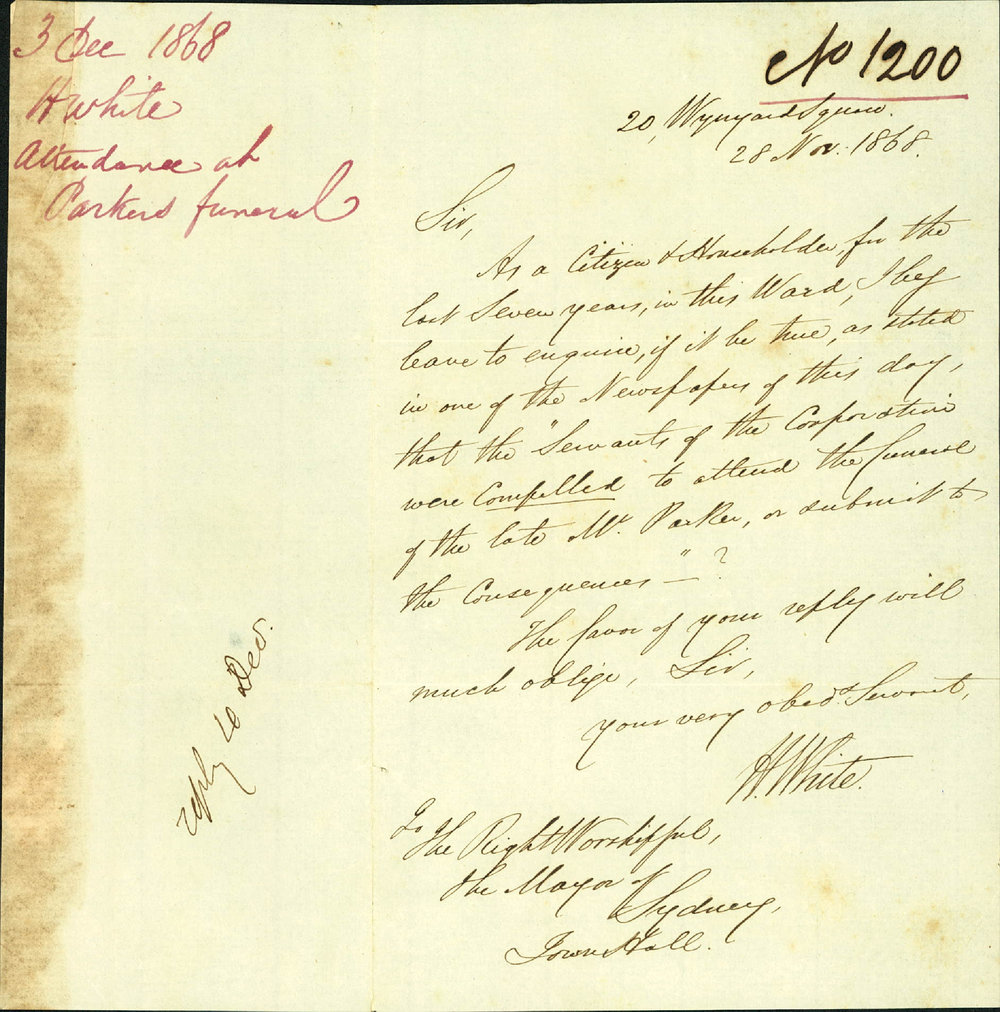 3 Dec 1868
H White
Attendance at
Parkers funeral
No 1200
20, Wynyard Square.
28 Nov. 1868.
Sir,
As a Citizen & Householder, for the
last Seven years, in this Ward, I beg
leave to enquire, if it be true, as stated
in one of the Newspapers of this day,
that the "Servants of the Corporation
were Compelled to attend the funeral
of the late Mr. Parker, or submit to
the Consequences — " ?
The favor of your reply will
much oblige, Sir,
your very obedt. Servant,
H. White.
To
The Right Worshipful,
the Mayor of
Sydney,
Town Hall.
reply 10 Dec.